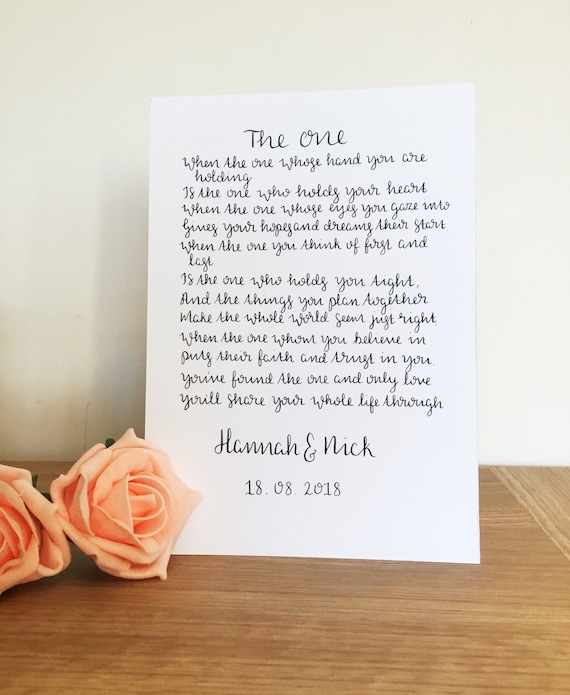 The one
When the one whose hand you are
holding
Is the one who holds your heart
When the one whose eyes you gaze into
Gives your hopes and dreams their start
When the one you think of first and
last
Is the one who holds you tight,
And the things you plan together
Make the whole world seem just right,
When the one whom you believe in
Puts their faith and trust in you.
You've found the one and only love
You'll share your whole life through
Hannah & Nick
18.08.2018